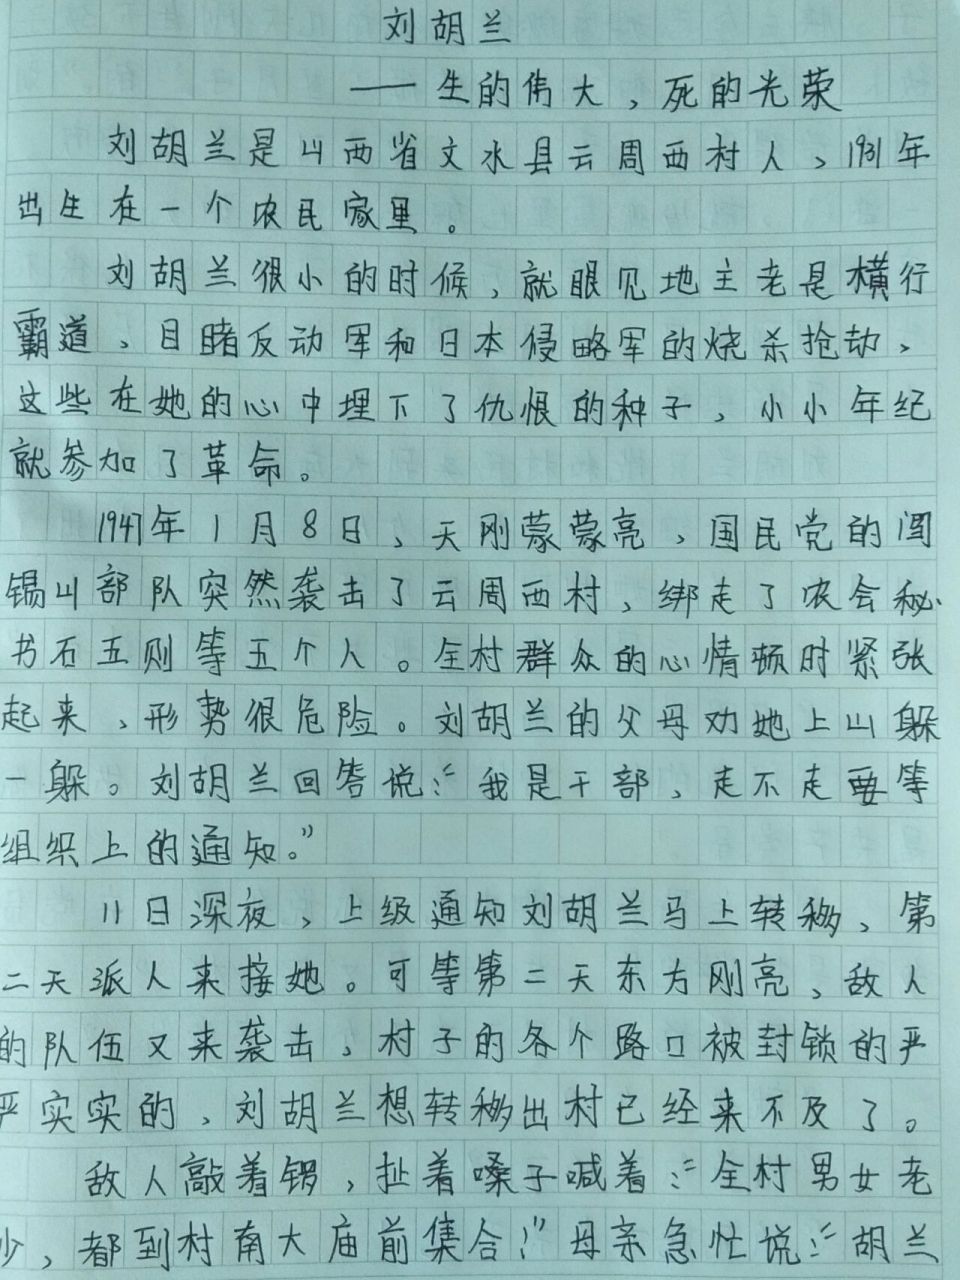 刘胡兰
——生的伟大，死的光荣
刘胡兰是山西省文水县云周西村人，1931年
出生在一个农民家里。
刘胡兰很小的时候，就眼见地主老是横行
霸道，目睹反动军和日本侵略军的烧杀抢劫，
这些在她的心中埋下了仇恨的种子，小小年纪
就参加了革命。
1947年1月8日，天刚蒙蒙亮，国民党的阎
锡山部队突然袭击了云周西村，绑走了农会秘
书石五则等五个人。全村群众的心情顿时紧张
起来，形势很危险。刘胡兰的父母劝她上山躲
一躲。刘胡兰回答说：“我是干部，走不走要等
组织上的通知。”
11日深夜，上级通知刘胡兰马上转移，第
二天派人来接她。可等第二天东方刚亮，敌人
的队伍又来袭击，村子的各个路口被封锁的严
严实实的，刘胡兰想转移出村已经来不及了。
敌人敲着锣，扯着嗓子喊着：“全村男女老
少，都到村南大庙前集合！”母亲急忙说：“胡兰